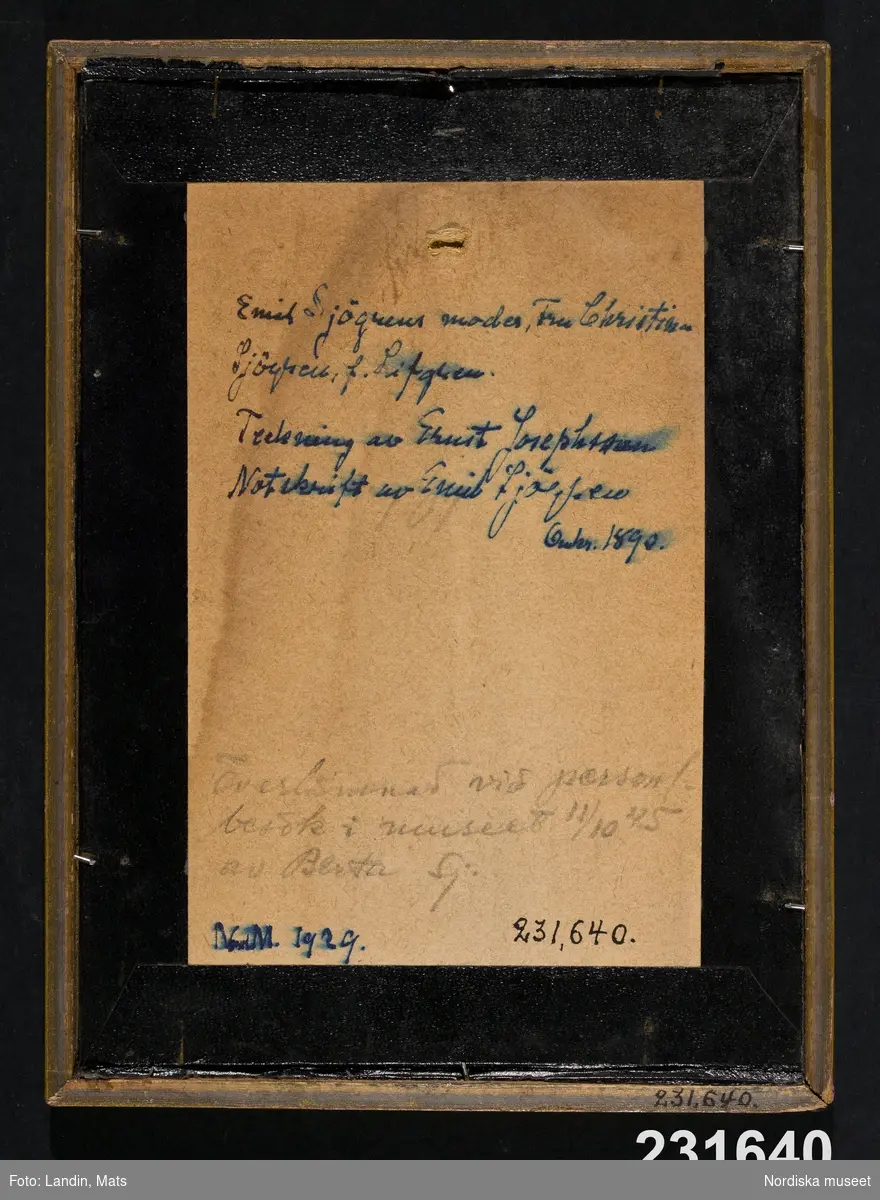 Emil Sjögrens moder, Fru Christina
Sjögren, f. Lifgren.
Teckning av Ernst Josephsson
Notskrift av Emil Sjögren
Omkr. 1890.
Överlämnad vid personl.
besök i museet 11/10 45
av Berta Sj.
N.M. 1929.
231,640.
231,640.
231640
Foto: Landin, Mats
Nordiska museet